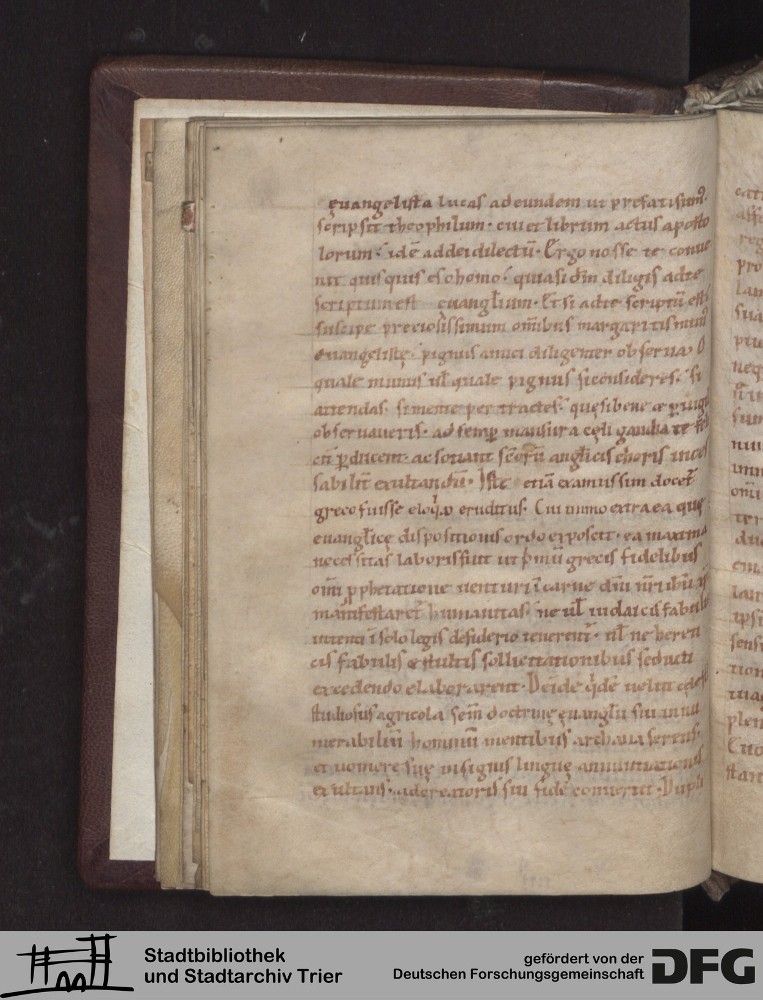 ęuangelista lucas ad eundem ut prefati sum⁹.
scripsit theophilum. cui et librum actus aposto
lorum. idē ad dei dilectū. Ergo nosse te conue
nit quisquis es o homo. qui asi dm̄ diligis ad te
scriptum est ęuanglium. Et si ad te scriptū est
suscipe preciosissimum om̄ibus margaritis mun⁹
euangelistę. pignus amici diligenter obserua. O
quale munus ul̄ quale pignus si consideres. si
attendas. si mente pertractes. quę si bene &
obseruaueris. ad semp mansura cęli gaudia te
p̄ducent. ac sonant sc̄orū anglicis choris
exultandū. Iste etiā examussim docet̄
greco fuisse eloq̇o eruditus. Cui inimo extra ea quę
euanglicę dispositionis ordo exposcit. ea maxima
necessitas laboris fuit ut p̄mū grecis fidelibus
om̄i p̄phetatione uenturi ī carne dn̄i nr̄i
manifestaret̄ humanitas. ne ul̄ iudaicis fabulis
intenti ī solo legis desiderio tenerent̄. ul̄ ne hereti
cis fabulis & stultis sollicitationibus seducti
excedendo elaborarent. Deīde q̇dē uelut
studiosus agricola sem̄ doctrinę ęuanglii sui innu
merabiliū hominū mentibus archana serens.
et uomere suę insignis linguę annuntiationis
exultans. ad creatoris sui fidē conuertit. Dupli
Stadtbibliothek
und Stadtarchiv Trier
gefördert von der
Deutschen Forschungsgemeinschaft
DFG